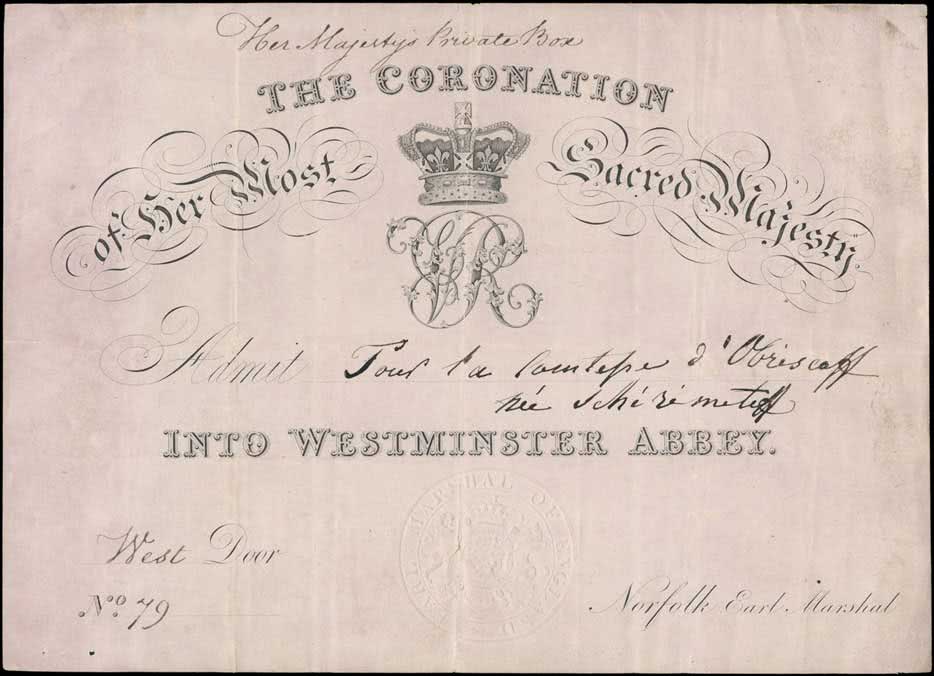 Her Majesty's Private Box
THE CORONATION
of Her Most Sacred Majesty
VR
Admit Pour la Comtesse d'Obrescoff
née Schérémeteff
INTO WESTMINSTER ABBEY.
EARL MARSHAL OF ENGLAND
West Door
No 79
Norfolk Earl Marshal